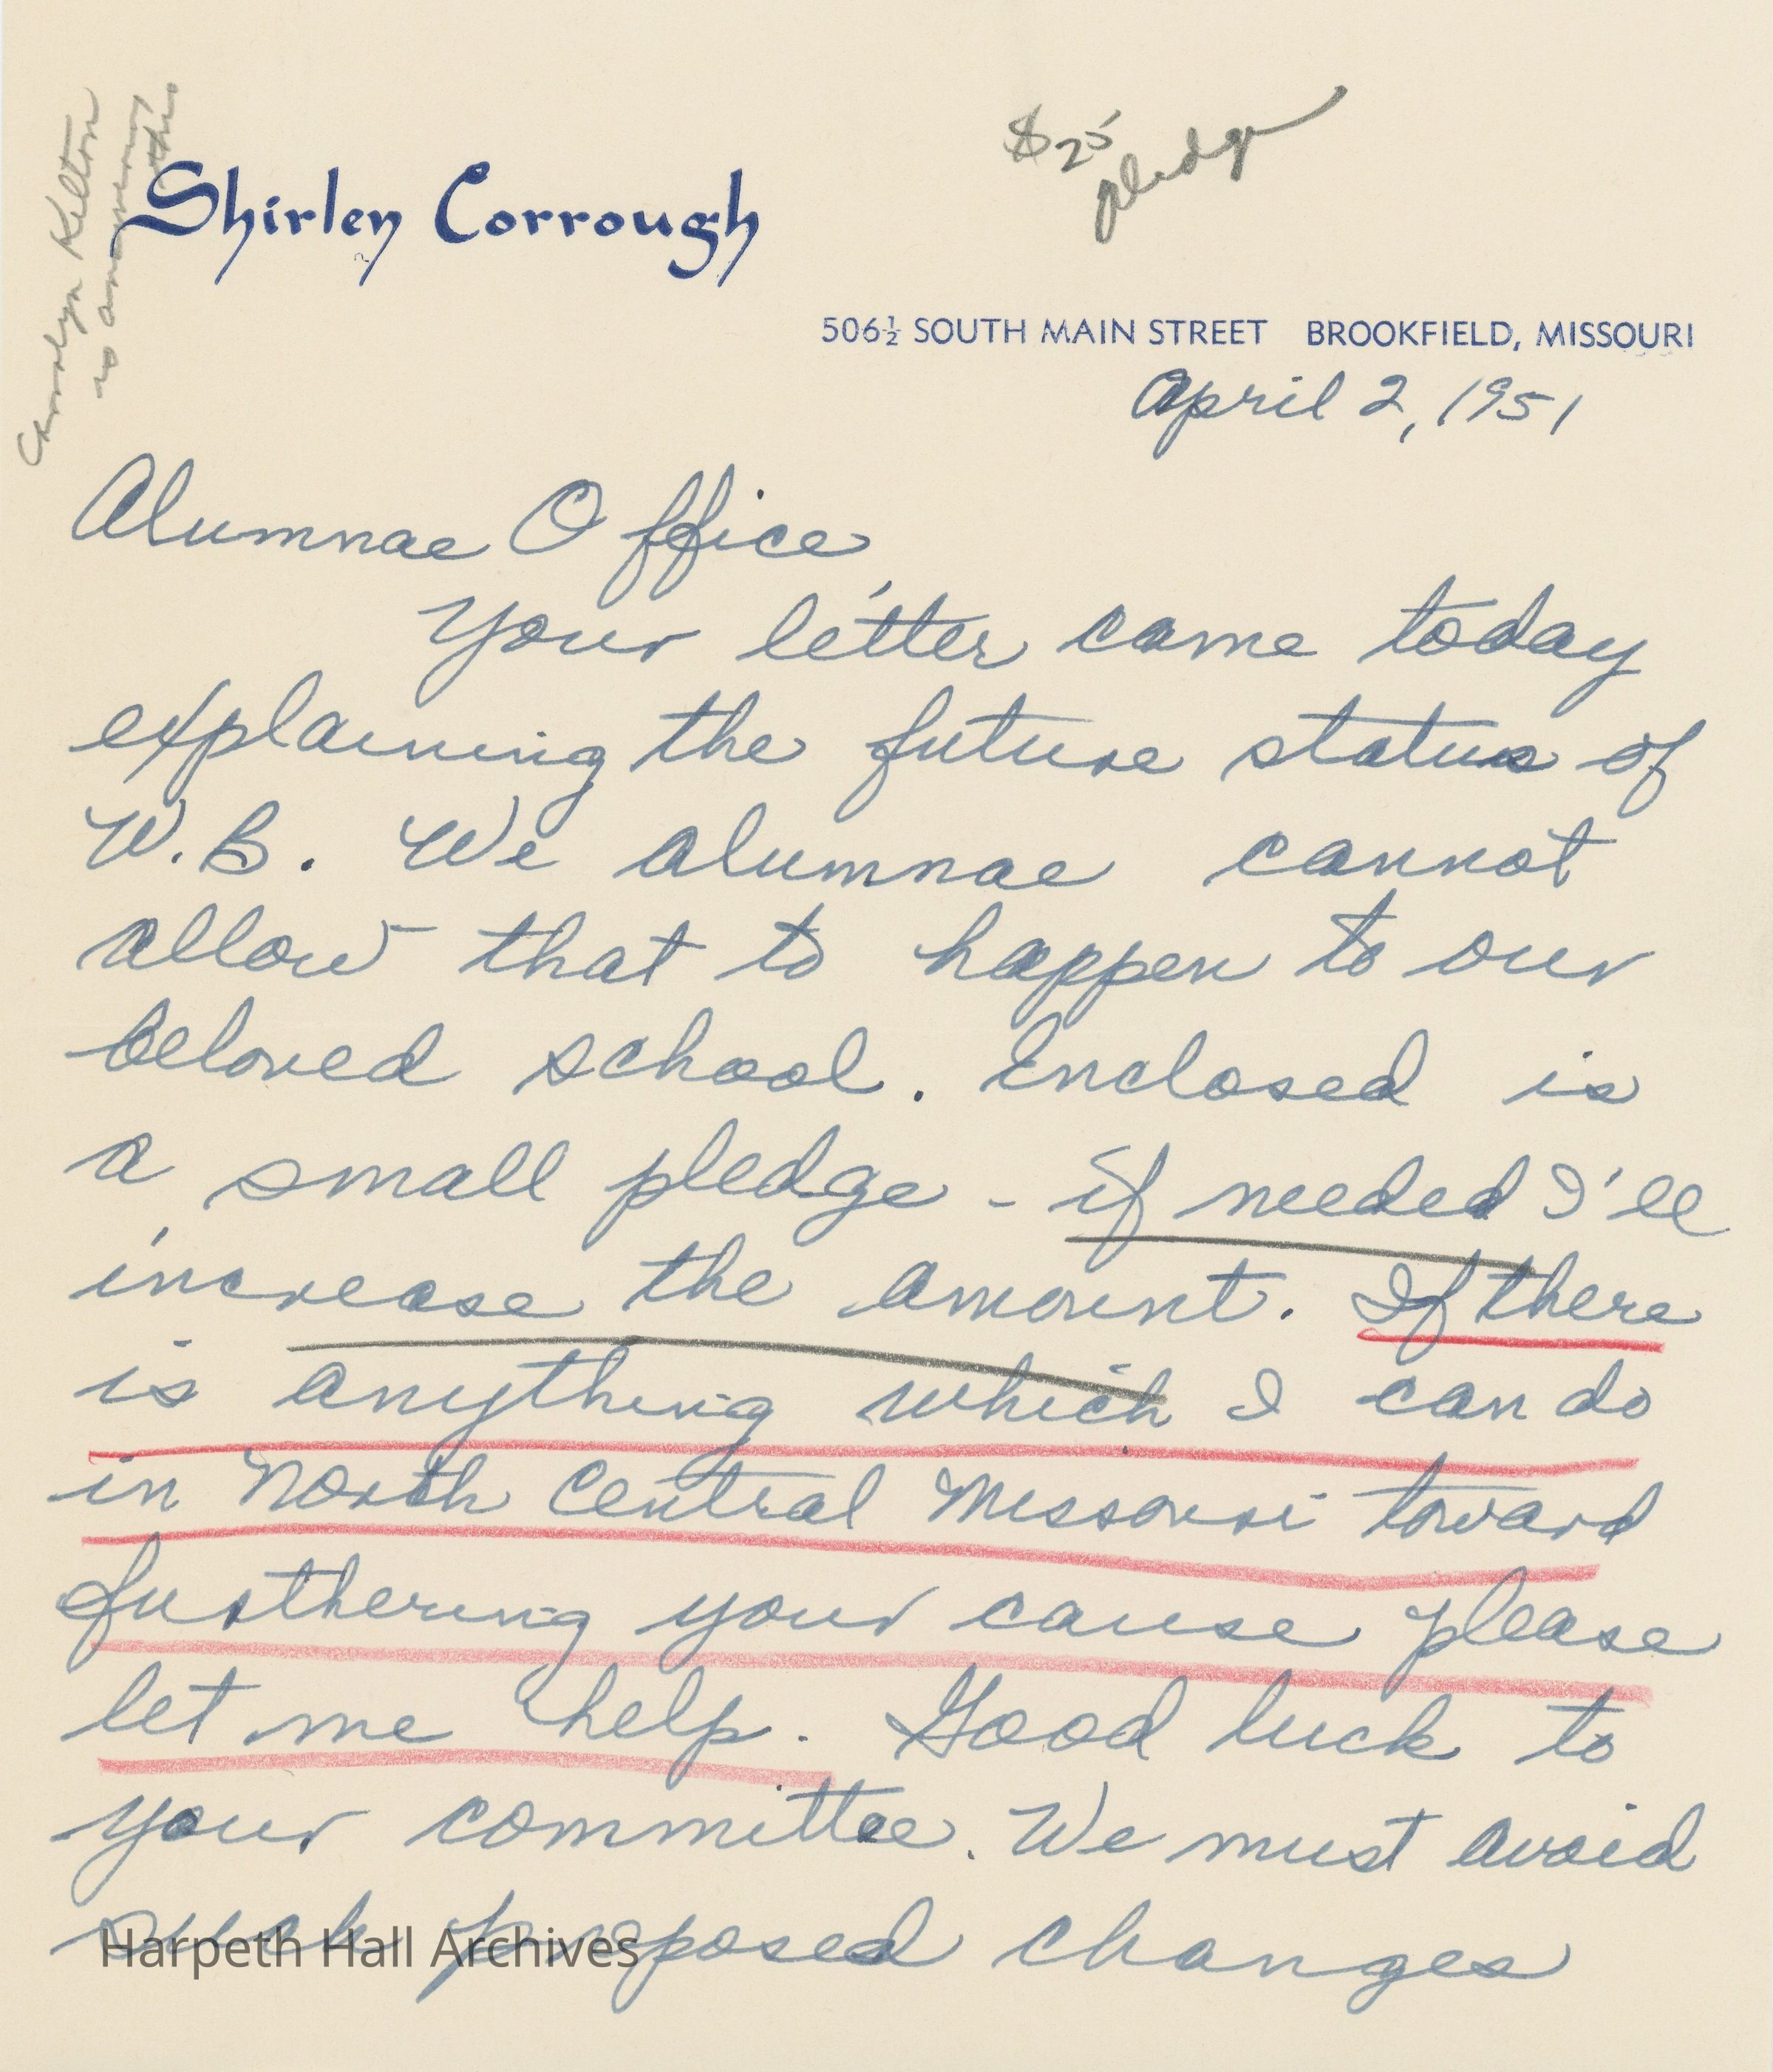 $25
pledge
Carolyn Kelton
is answering
this
Shirley Corrough
506½ SOUTH MAIN STREET BROOKFIELD, MISSOURI
April 2, 1951
Alumnae Office,
Your letter came today
explaining the future status of
W.B. We alumnae cannot
allow that to happen to our
beloved school. Enclosed is
a small pledge - if needed I'll
increase the amount. If there
is anything which I can do
in North Central Missouri toward
furthering your cause please
let me help. Good luck to
your committee. We must avoid
such proposed changes
Harpeth Hall Archives